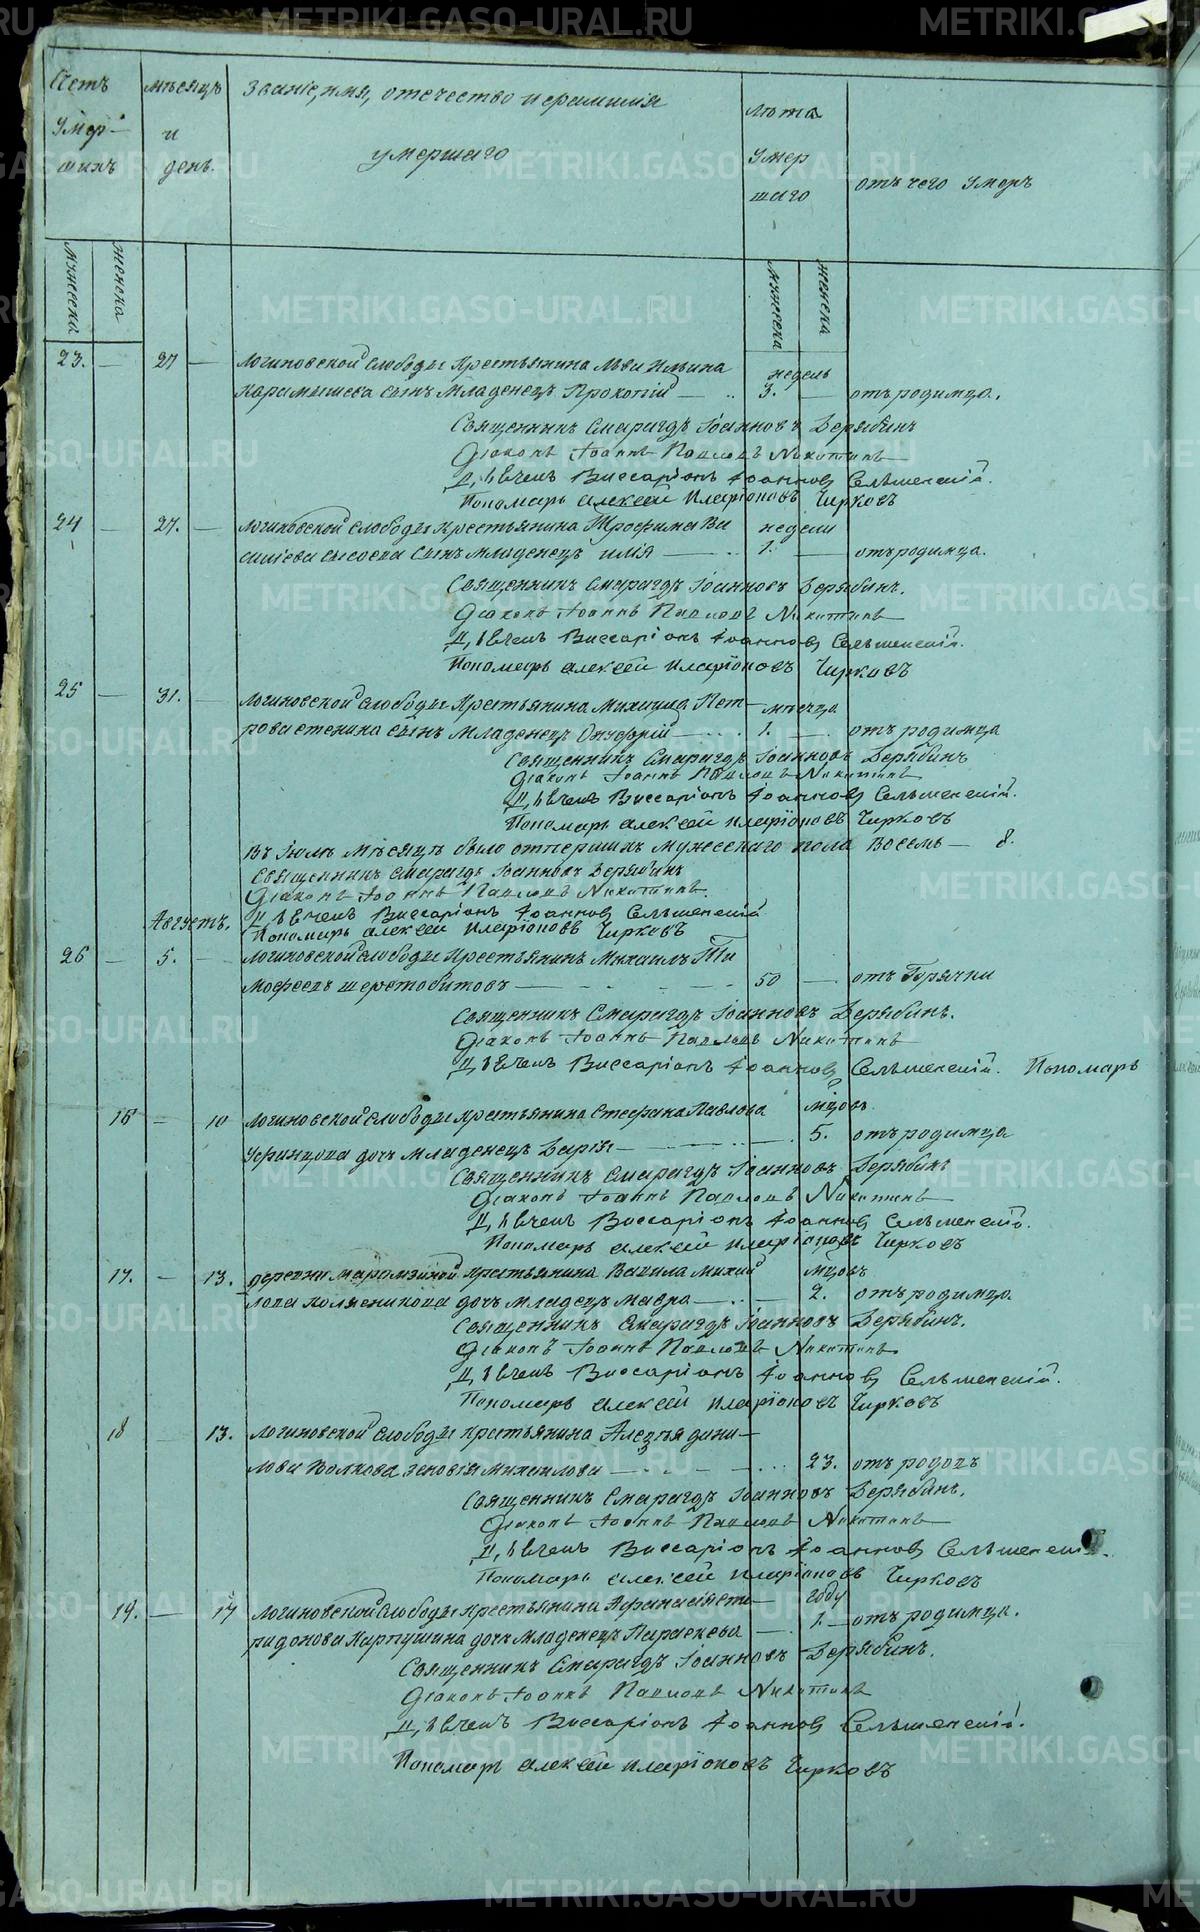 Счетъ умершихъ
мѣсяцъ и день.
Званіе, имя, отечество и фамилія
умершаго
лѣта умершаго
отъ чего умеръ
мужеска женска
мужеска женска
23. — 27 — Логиновской слободы крестьянина Льва Ильина недель
Карамышева сынъ младенецъ Прокопій — 3. — отъ родимца.
Священникъ Смарагдъ Іоанновъ Дерябинъ
Діаконъ Іоаннъ Павловъ Никитинъ
Виссаріонъ Іоаннов Сельменскій.
Пономарь Алексей Иларіоновъ Чирковъ
24 — 27. — Логиновской слободы крестьянина Трофима Ва недели
силіева Сысоева сынъ младенецъ Илія — 1. — отъ родимца.
Священникъ Смарагдъ Іоанновъ Дерябинъ.
Діаконъ Іоаннъ Павловъ Никитинъ
Виссаріонъ Іоаннов Сельменскій.
Пономарь Алексей Иларіоновъ Чирковъ
25 — 31. — Логиновской слободы крестьянина Михаила Пет- месяца
рова Стенина сынъ младенецъ Онуфрій — 1. — отъ родимца
Священникъ Смарагдъ Іоанновъ Дерябинъ
Діаконъ Іоаннъ Павловъ Никитинъ
Виссаріонъ Іоаннов Сельменскій.
Пономарь Алексей Иларіоновъ Чирковъ
Въ Іюлѣ месяцѣ было умершихъ мужескаго пола восемь — 8.
Священникъ Смарагдъ Іоанновъ Дерябинъ
Діаконъ Іоаннъ Павловъ Никитинъ.
Августъ. Виссаріонъ Іоаннов Сельменскій
Пономарь Алексей Иларіоновъ Чирковъ
26 — 5. — Логиновской слободы крестьянинъ Михаилъ Ти
мофеевъ Шерстобитовъ — 50 — отъ Горячки
Священникъ Смарагдъ Іоанновъ Дерябинъ.
Діаконъ Іоаннъ Павловъ Никитинъ
Виссаріонъ Іоаннов Сельменскій. Пономарь
16 — 10 Логиновской слободы крестьянина Стефана Павлова м̃цовъ.
Уфинцова дочь младенецъ Дарія — 5. отъ родимца
Священникъ Смарагдъ Іоанновъ Дерябинъ
Діаконъ Іоаннъ Павловъ Никитинъ
Виссаріонъ Іоаннов Сельменскій.
Пономарь Алексей Иларіоновъ Чирковъ
17. — 13. деревни крестьянина Вавила Михай м̃цовъ
лова Колясникова дочь младенецъ Мавра — 2. отъ родимца.
Священникъ Смарагдъ Іоанновъ Дерябинъ.
Діаконъ Іоаннъ Павловъ Никитинъ
Виссаріонъ Іоаннов Сельменскій.
Пономарь Алексей Иларіоновъ Чирковъ
18 — 13. Логиновской слободы крестьянина дани-
лова Волкова Зеновія Михеилова — 23. отъ родовъ
Священникъ Смарагдъ Іоанновъ Дерябинъ.
Діаконъ Іоаннъ Павловъ Никитинъ
Виссаріонъ Іоаннов Сельменскій.
Пономарь Алексей Иларіоновъ Чирковъ
19. — 17 Логиновской слободы крестьянина Афанасія Спи- году
ридонова Карпушина дочь младенецъ Параскева — 1. — отъ родимца.
Священникъ Смарагдъ Іоанновъ Дерябинъ.
Діаконъ Іоаннъ Павловъ Никитинъ
Виссаріонъ Іоаннов Сельменскій.
Пономарь Алексей Иларіоновъ Чирковъ
METRIKI.GASO-URAL.RU